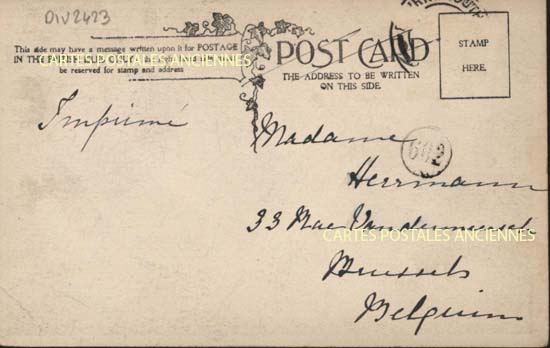 DIV2423
This side may have a message written upon it for POSTAGE
IN THE
be reserved for stamp and address
CARTES POSTALES ANCIENNES
POST CARD
THE ADDRESS TO BE WRITTEN
ON THIS SIDE.
STAMP
HERE.
Imprimé
Madame
Herrmann
33 Rue
CARTES POSTALES ANCIENNES
Brussels
Belgium